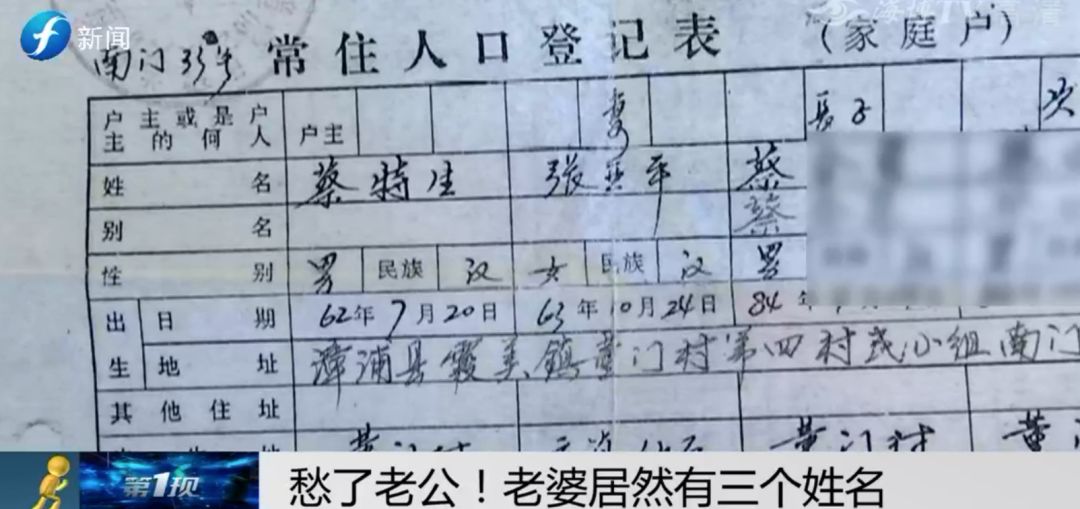 新闻
海博TV 高清
南门 35号
常住人口登记表 (家庭户)
户主或是户主的何人 户主 妻 长子 次
姓名 蔡特生 张 平 蔡
别名 蔡
性别 男 民族 汉 女 民族 汉 男
出生 日期 62年7月20日 63年10月24日 84年
地址 漳浦县霞美镇董门村第四村民小组南门
其他住址
董门村 董门村 董
第1现
愁了老公！老婆居然有三个姓名